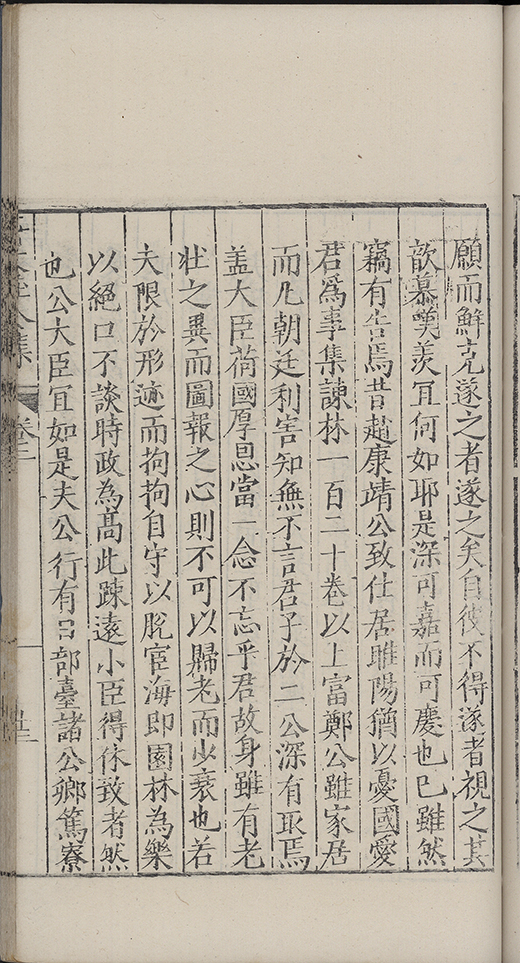 願而鮮克遂之者遂之矣自彼不得遂者視之其
歆慕嘆羨冝何如耶是深可嘉而可慶也已雖然
竊有告焉昔趙康靖公致仕居睢陽猶以憂國愛
君爲事集諫林一百二十卷以上富鄭公雖家居
而凢朝廷利害知無不言君子於二公深有取焉
盖大臣荷國厚恩當一念不忘乎君故身雖有老
壯之異而圖報之心則不可以歸老而少衰也若
夫限於形迹而拘拘自守以脫宦海即園林為樂
以絕口不談時政為髙此踈遠小臣得休致者然
也公大臣冝如是夫公行有日部臺諸公鄉篤寮
卷二